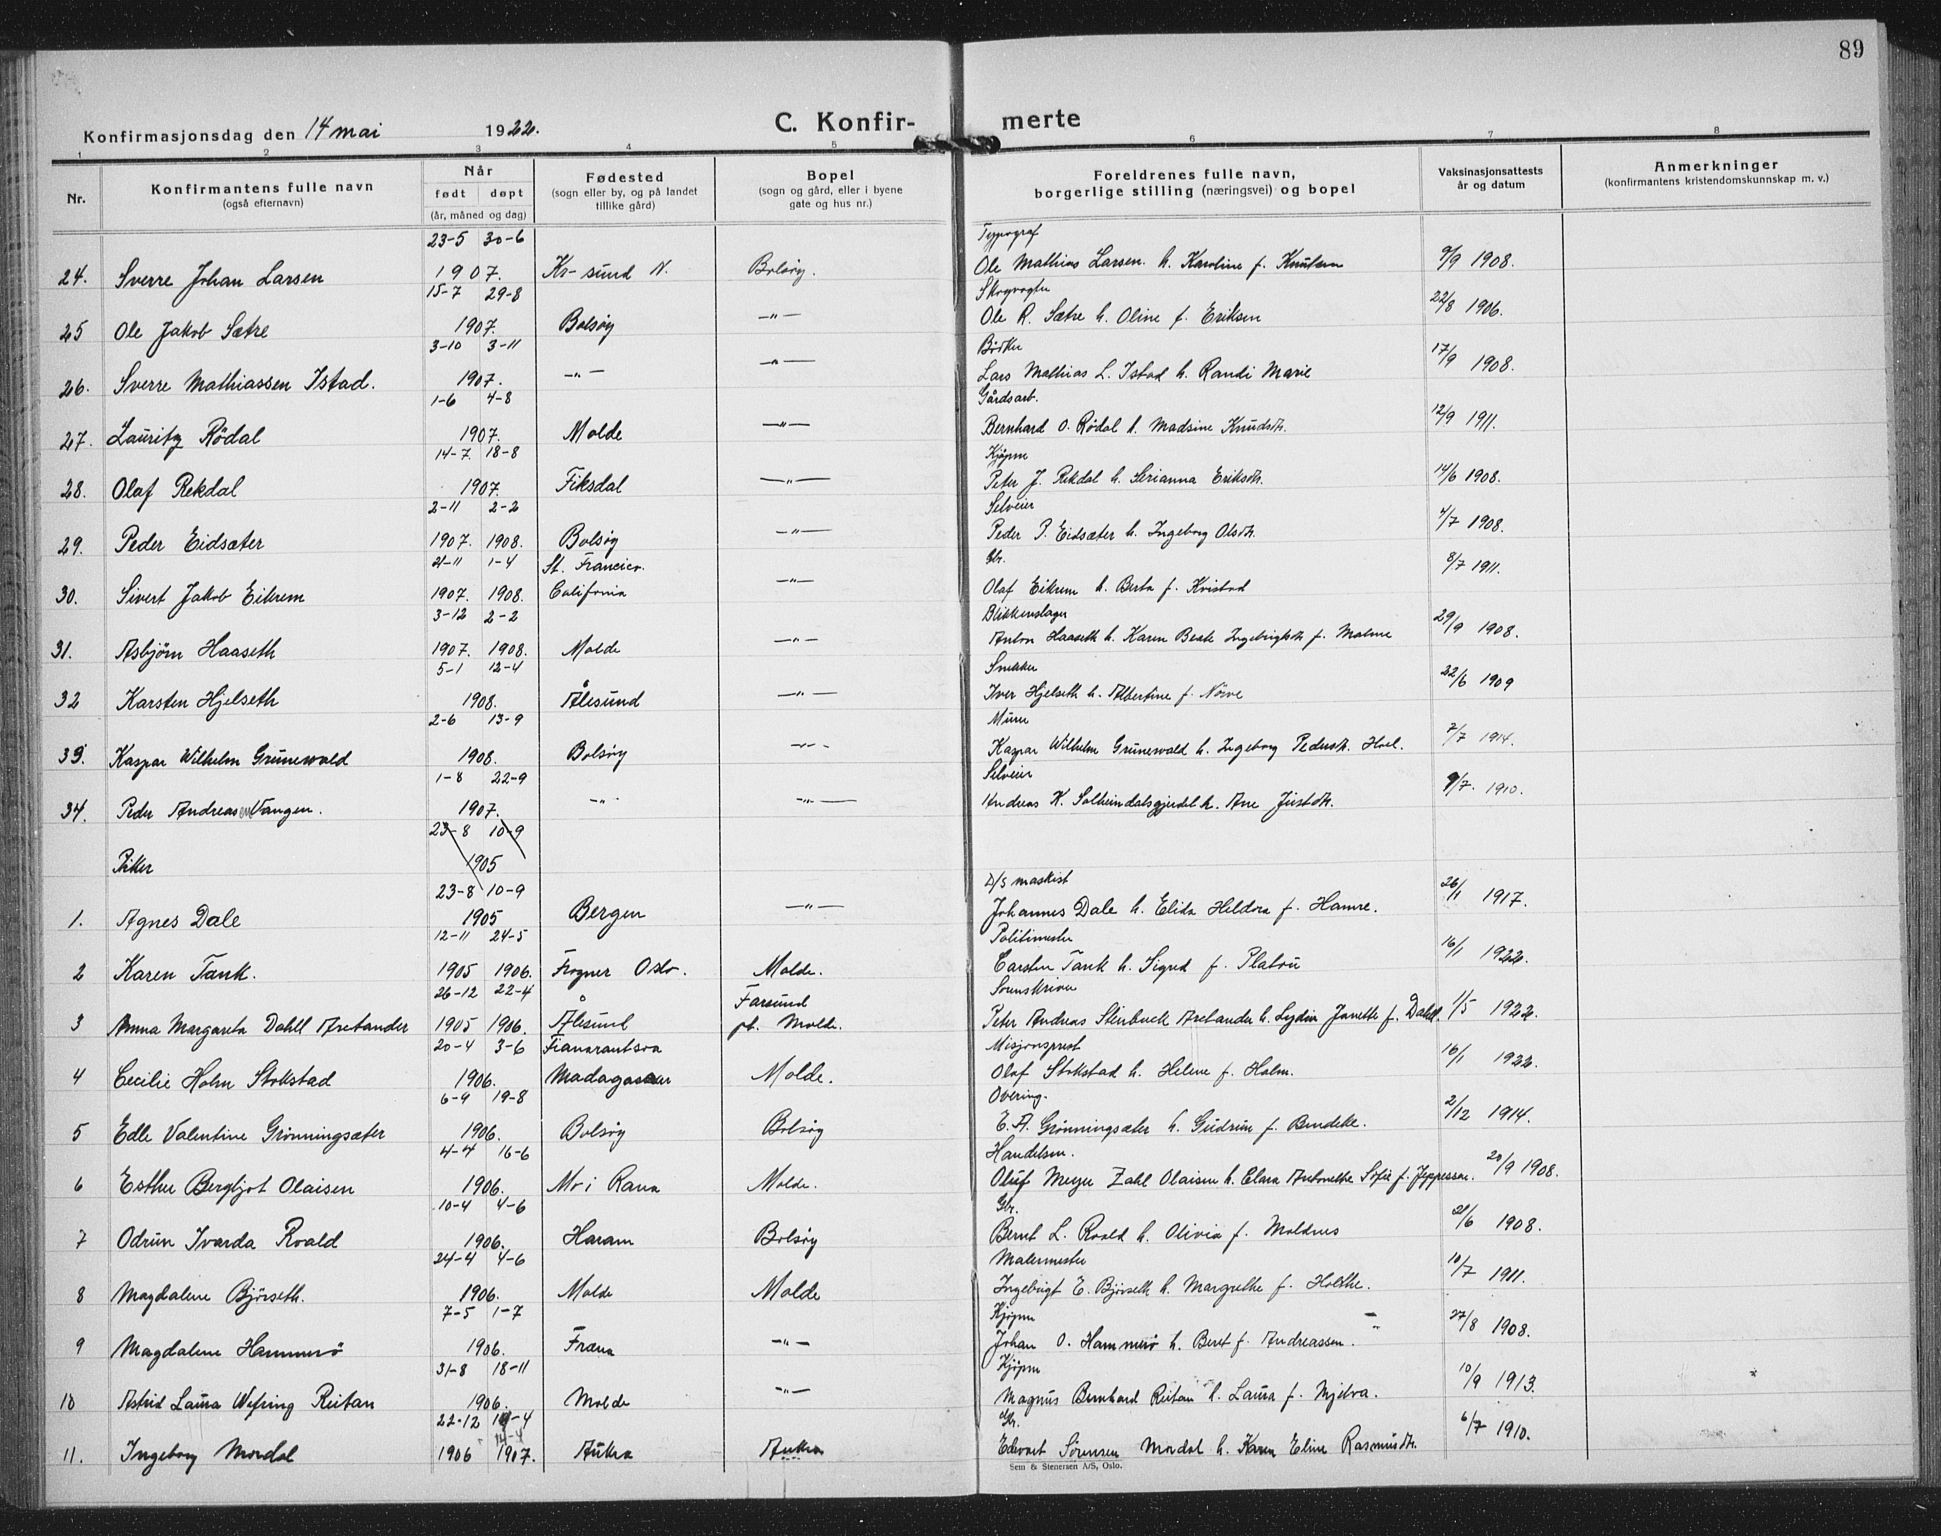 89
Konfirmasjonsdag den 14 mai 1922. C. Konfir- merte
1 2 3 4 5 6 7 8
Nr. Konfirmantens fulle navn (også efternavn) Når født døpt (år, måned og dag) Fødested (sogn eller by, og på landet tillike gård) Bopel (sogn og gård, eller i byene gate og hus nr.) Foreldrenes fulle navn, borgerlige stilling (næringsvei) og bopel Vaksinasjonsattests år og datum Anmerkninger (konfirmantens kristendomskunnskap m. v.)
23-5 30-6 Typograf
24. Sverre Johan Larsen 1907. Kr-sund N. Bolsøy. Ole Mathias Larsen h. Karoline f. Knutsen 9/9 1908.
15-7 29-8 Skogvogter
25 Ole Jakob Sætre 1907. Bolsøy —"— Ole R. Sætre h. Oline f. Eriksen 22/8 1906.
3-10 3-11 Bødker
26. Sverre Mathiassen Istad. 1907. —"— —"— Lars Mathias L. Istad h. Randi Marie 17/9 1908.
1-6 4-8 Gårdsarb.
27. Lauritz Rödal 1907. Molde —"— Bernhard O. Rødal h. Madsine Knudsdtr. 12/9 1911.
14-7 18-8 Kjøpm
28. Olaf Rekdal 1907. Fiksdal —"— Peter J. Rekdal h. Serianna Eriksdtr. 14/6 1908.
2-11 2-2 Selveier
29. Peder Eidsæter 1907. 1908. Bolsøy —"— Peder P. Eidsæter h. Ingeborg Olsdtr. 4/7 1908.
21-11 1-4 St. Francisco. Gbr.
30. Sivert Jakob Eikrem 1907. 1908. California —"— Olaf Eikrem h. Berta f. Kvistad 8/7 1911.
3-12 2-2 Blikkenslager
31. Asbjørn Haaseth 1907. 1908. Molde —"— Anton Haaseth h. Karen Beate Ingebrigtsdtr. f. Malme 29/9 1908.
5-1 12-4 Snekker
32 Karsten Hjelseth 1908. Ålesund —"— Iver Hjelseth h. Albertine f. Nörve 22/6 1909
2-6 13-9 Murer
33. Kaspar Wilhelm Grünewald 1908. Bolsøy —"— Kaspar Wilhelm Grünewald h. Ingeborg Pedersdtr. Hoel. 7/7 1914.
1-8 22-9 Selveier
34. Peder Andreassen Vangen. 1907. —"— —"— Andreas K. Solheimdalsgjerdet h. Ane Justdtr. 9/7. 1910.
23-8 10-9
Piker 1905
23-8 10-9 D/s maskist
1. Agnes Dale 1905 Bergen —"— Johannes Dale h. Elida Hildora f. Hamre. 26/1 1917.
12-11 24-5 Politimester
2 Karen Tank. 1905 1906. Frogner Oslo. Molde. Carsten Tank h. Sigrid f. Platou 16/1 1922.
26-12 22-4 Farsund Sorenskriver
3 Anna Margareta Dahll Arctander 1905 1906. Ålesund pt. Molde. Peter Andreas Stenbuck Arctander h. Lydia Janette f. Dahll. 1/5 1922.
20-4 3-6 Fianarantsoa Misjonsprest
4 Cecilie Holm Stokstad 1906. Madagascar Molde. Olaf Stokstad h. Helene f. Holm. 16/1 1922.
6-9 19-8 Overing.
5 Edle Valentine Grønningsæter 1906. Bolsøy Bolsøy E. A. Grønningsæter h. Gudrun f. Bendeke. 2/12 1914.
4-4 16-6 Handelsm.
6 Esther Bergljot Olaisen 1906. Mo i Rana Molde. Oluf Meyer Zahl Olaisen h. Clara Antonette Sofie f. Jeppessen. 20/9 1908.
10-4 4-6 Gbr.
7 Odrun Ivarda Roald 1906. Haram Bolsøy Bernt L. Roald h. Olivia f. Moldnes 21/6 1908.
24-4 4-6 Malermester
8 Magdalene Bjørseth. 1906. Molde Molde Ingebrigt E. Bjørseth h. Margrethe f. Holthe. 10/7 1911.
7-5 1-7 Kjøpm
9 Magdalene Hammerø 1906. Fræna —"— Johan O. Hammerø h. Beret f. Andreassen. 27/8 1908.
31-8 18-11 Kjøpm
10 Astrid Laura Wefring Reitan 1906. Molde —"— Magnus Bernhard Reitan h. Laura f. Mjelva. 10/9 1913.
22-12 14-4 Gbr.
14-4
11. Ingeborg Mordal 1906 1907. Aukra Aukra Edvart Sørensen Mordal h. Karen Eline Rasmusdtr. 6/7 1910.
Sem & Stenersen A/S, Oslo.